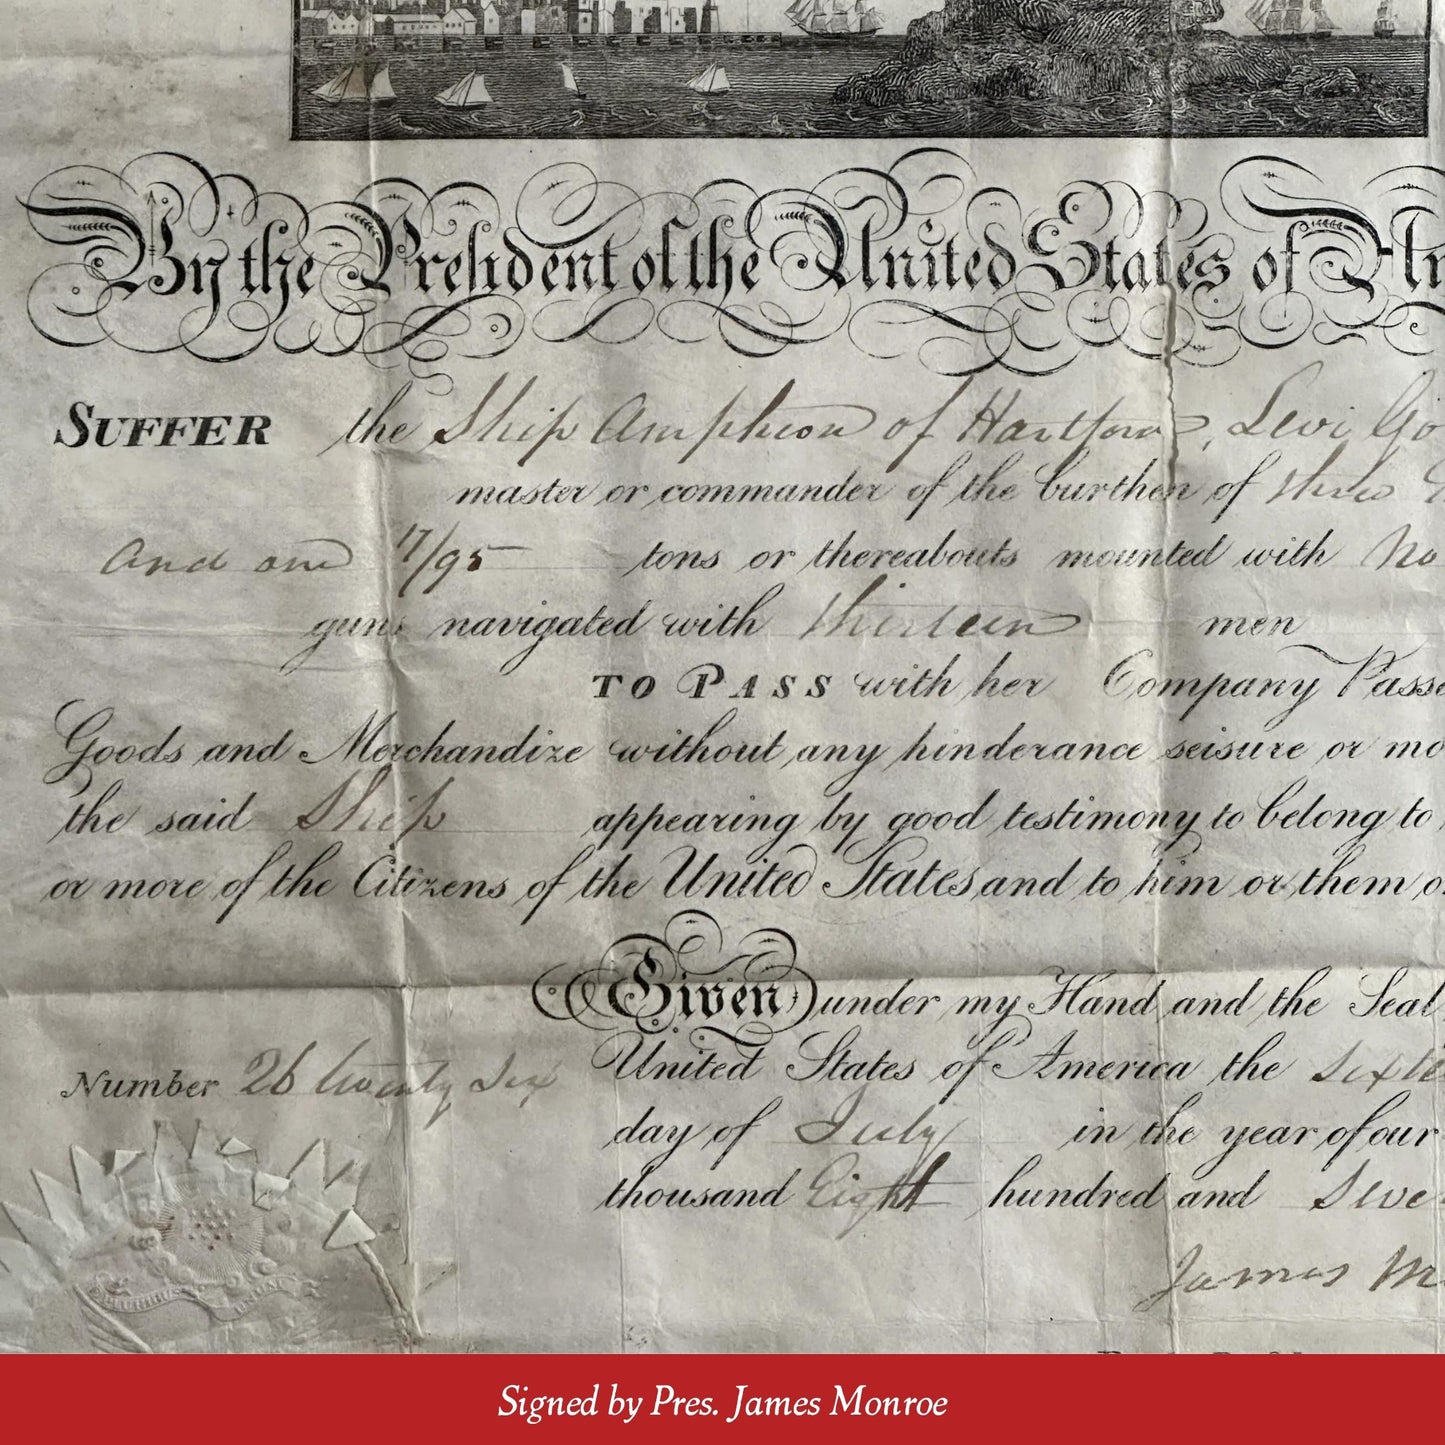 By the President of the United States of Am
SUFFER the Ship Amphion of Hartford, Levi Go
master or commander of the burthen of three
and one 17/95 tons or thereabouts mounted with no
guns navigated with thirteen men
TO PASS with her Company Passe
Goods and Merchandize without any hinderance seisure or mo
the said Ship appearing by good testimony to belong to
or more of the Citizens of the United States and to him or them o
Given under my Hand and the Seal
United States of America the sixte
Number 26 twenty six
day of July in the year of our
thousand Eight hundred and Seve
James M
E PLURIBUS UNUM
Signed by Pres. James Monroe